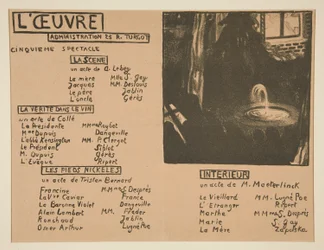 L'ŒUVRE
ADMINISTRATION 23 R. TURGOT
CINQUIÈME SPECTACLE
LA SCÈNE
un acte de A. Lebey
La mère
Jacques
Le père
L'oncle
Mlle S. Gay
MM. Deslouis
Joblin
Gérès
LA VERITÉ DANS LE VIN
un acte de Collé
La Présidente
Mme Dupuis
L'abbé Kensington
Le Président
M. Dupuis
L'Évêque
Dangeville
MM. P. Clerget
Gérès
Ripert
LES PIEDS NICKELÉS
un acte de Tristan Bernard
Francine
La Vve Cavier
La Baronne Violet
Alain Lambert
Ronchaud
Omer Arthur
MMmes Després
France
Dangeville
MM.
Joblin
Lugné Poe
INTÉRIEUR
un acte de M. Maeterlinck
Le Vieillard
L'Étranger
Marthe
Marie
La Mère
MM. Lugné Poe
Ripert
MMmes Després
S. Gay